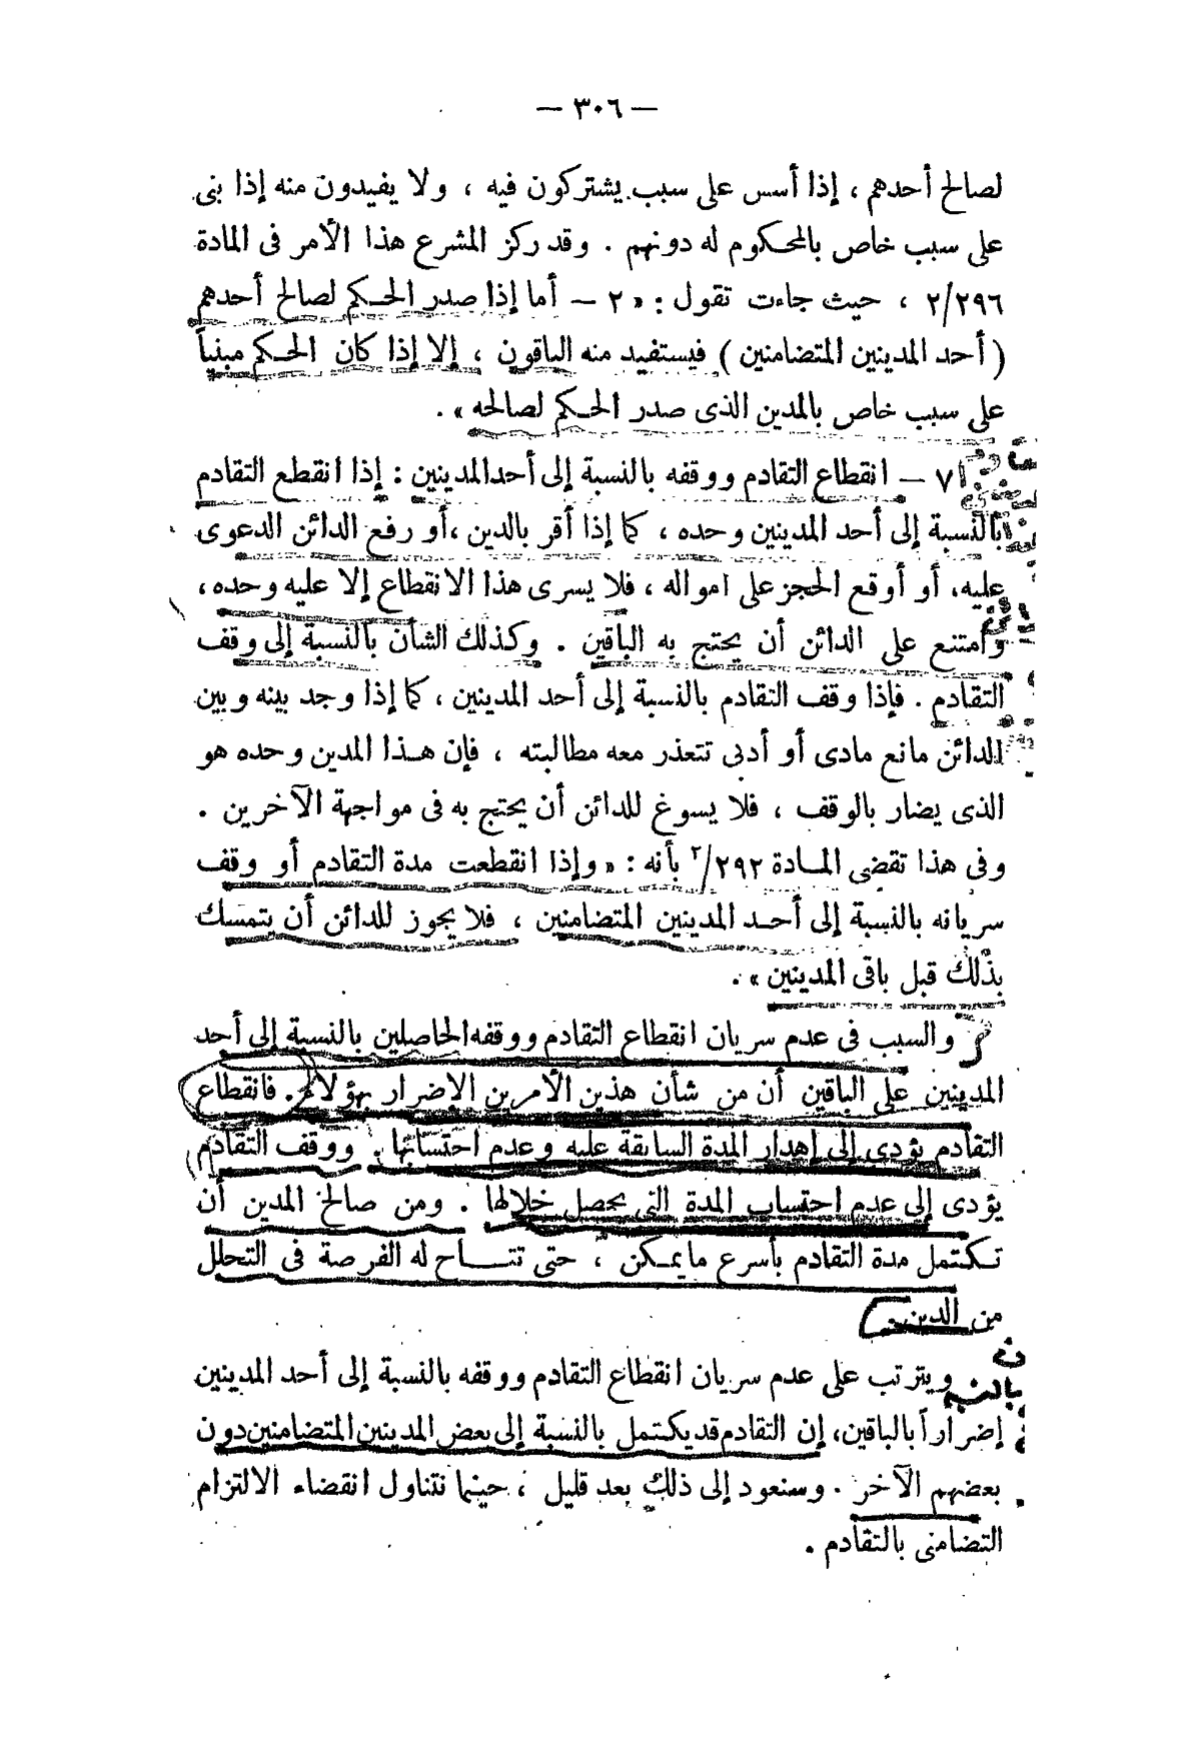 — ٣٠٦ —
لصالح أحدهم ، إذا أسس على سبب يشتركون فيه ، ولا يفيدون منه إذا بنى
على سبب خاص بالمحكوم له دونهم . وقد ركز المشرع هذا الأمر فى المادة
٢/٢٩٦ ، حيث جاءت تقول : « ٢ — أما إذا صدر الحكم لصالح أحدهم
( أحد المدينين المتضامنين ) فيستفيد منه الباقون ، إلا إذا كان الحكم مبنياً
على سبب خاص بالمدين الذى صدر الحكم لصالحه » .
٧ — انقطاع التقادم ووقفه بالنسبة إلى أحد المدينين : إذا انقطع التقادم
بالنسبة إلى أحد المدينين وحده ، كما إذا أقر بالدين ، أو رفع الدائن الدعوى
عليه، أو أوقع الحجز على امواله ، فلا يسرى هذا الانقطاع إلا عليه وحده ،
وامتنع على الدائن أن يحتج به الباقين . وكذلك الشأن بالنسبة إلى وقف
التقادم . فإذا وقف التقادم بالنسبة إلى أحد المدينين ، كما إذا وجد بينه وبين
الدائن مانع مادى أو أدبى تتعذر معه مطالبته ، فإن هذا المدين وحده هو
الذى يضار بالوقف ، فلا يسوغ للدائن أن يحتج به فى مواجهة الآخرين .
وفى هذا تقضى المادة ٢/٢٩٢ بأنه : « وإذا انقطعت مدة التقادم أو وقف
سريانه بالنسبة إلى أحد المدينين المتضامنين ، فلا يجوز للدائن أن يتمسك
بذلك قبل باقى المدينين » .
والسبب فى عدم سريان انقطاع التقادم ووقفه الحاصلين بالنسبة إلى أحد
المدينين على الباقين أن من شأن هذين الأمرين الإضرار بهؤلاء . فانقطاع
التقادم يؤدى إلى إهدار المدة السابقة عليه وعدم احتسابها . ووقف التقادم
يؤدى إلى عدم احتساب المدة التى يحصل خلالها . ومن صالح المدين أن
تكتمل مدة التقادم بأسرع ما يمكن ، حتى تتاح له الفرصة فى التحلل
من الدين .
ويترتب على عدم سريان انقطاع التقادم ووقفه بالنسبة إلى أحد المدينين
إضراراً بالباقين، إن التقادم قد يكتمل بالنسبة إلى بعض المدينين المتضامنين دون
بعضهم الآخر . وسنعود إلى ذلك بعد قليل ، حينما نتناول انقضاء الالتزام
التضامنى بالتقادم .